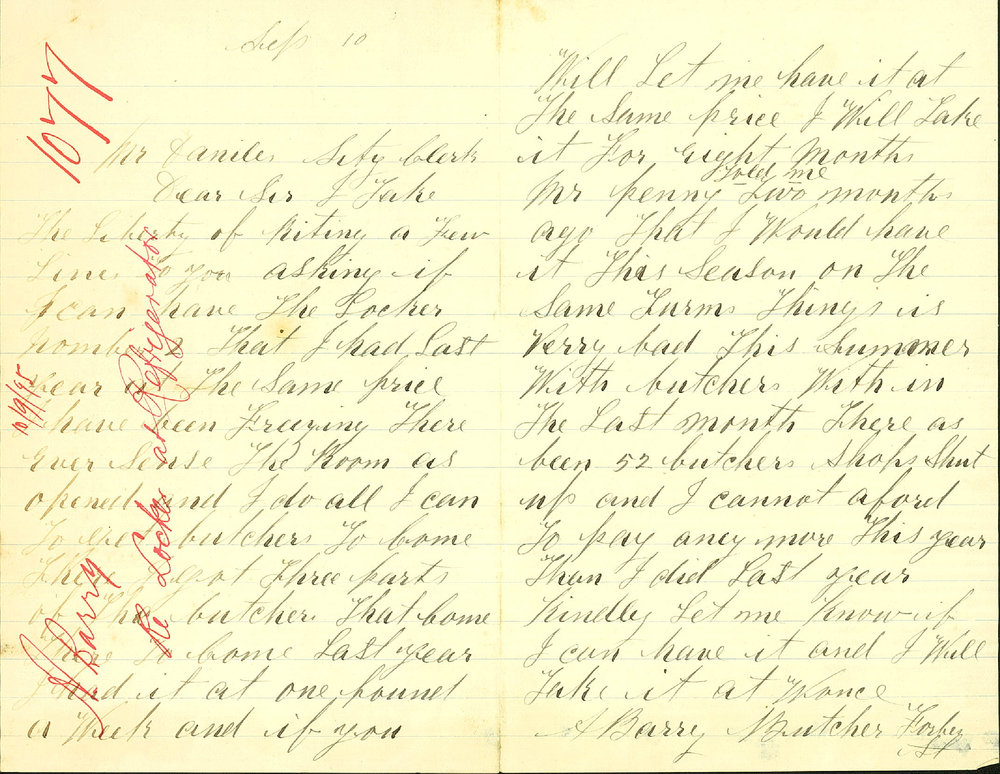 Sep 10
Mr Daniels Sity Clerk
Dear Sir I Take
The Liberty of Riting a Few
Lines To you asking if
I can have The Locker
Nomber That I had Last
year at The Same price
I have been Frezing There
Ever Sense The Room as
opened and I do all I can
To get butchers To Come
There I got Three parts
of The butchers That Come
There To Come Last year
I had it at one pound
a Week and if you
Will Let me have it at
The Same price I Will Take
it For Eight Months
Mr penny Told me Two months
ago That I Would have
it This Season on The
Same Turms Things is
Verry bad This Summer
With butchers With in
The Last month There as
been 52 butchers Shops Shut
up and I cannot aford
To pay aney more This year
Than I did Last year
Kindly Let me Know if
I can have it and I Will
Take it at Wonce
A Barry Butcher Forbes
St
1077
10/9/95
A Barry
Re Locker at Refrigerator